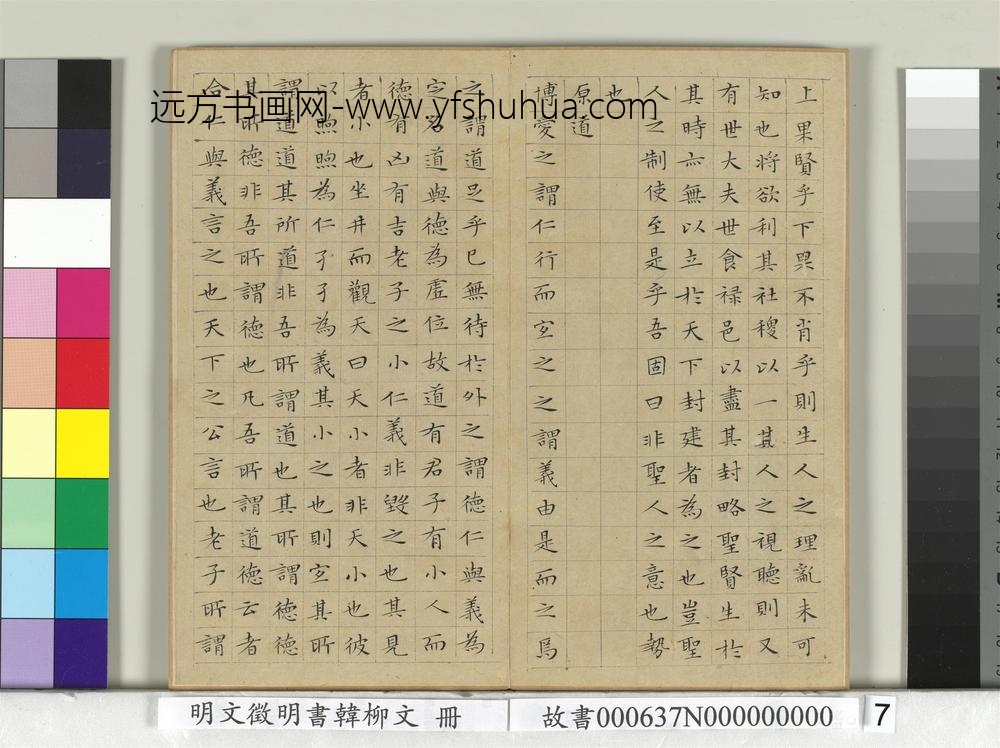 远方书画网-www.yfshuhua.com
上果賢乎下果不肖乎則生人之理亂未可
知也將欲利其社稷以一其人之視聽則又
有世大夫世食祿邑以盡其封略聖賢生於
其時亦無以立於天下封建者為之也豈聖
人之制使至是乎吾固曰非聖人之意也勢
也
原道
博愛之謂仁行而宜之之謂義由是而之焉
之謂道足乎已無待於外之謂德仁與義為
定名道與德為虛位故道有君子有小人而
德有凶有吉老子之小仁義非毀之也其見
者小也坐井而觀天曰天小者非天小也彼
以煦煦為仁孑孑為義其小之也則宜其所
謂道道其所道非吾所謂道也其所謂德德
其所德非吾所謂德也凡吾所謂道德云者
合仁與義言之也天下之公言也老子所謂
明文徵明書韓柳文 冊
故書000637N000000000
7